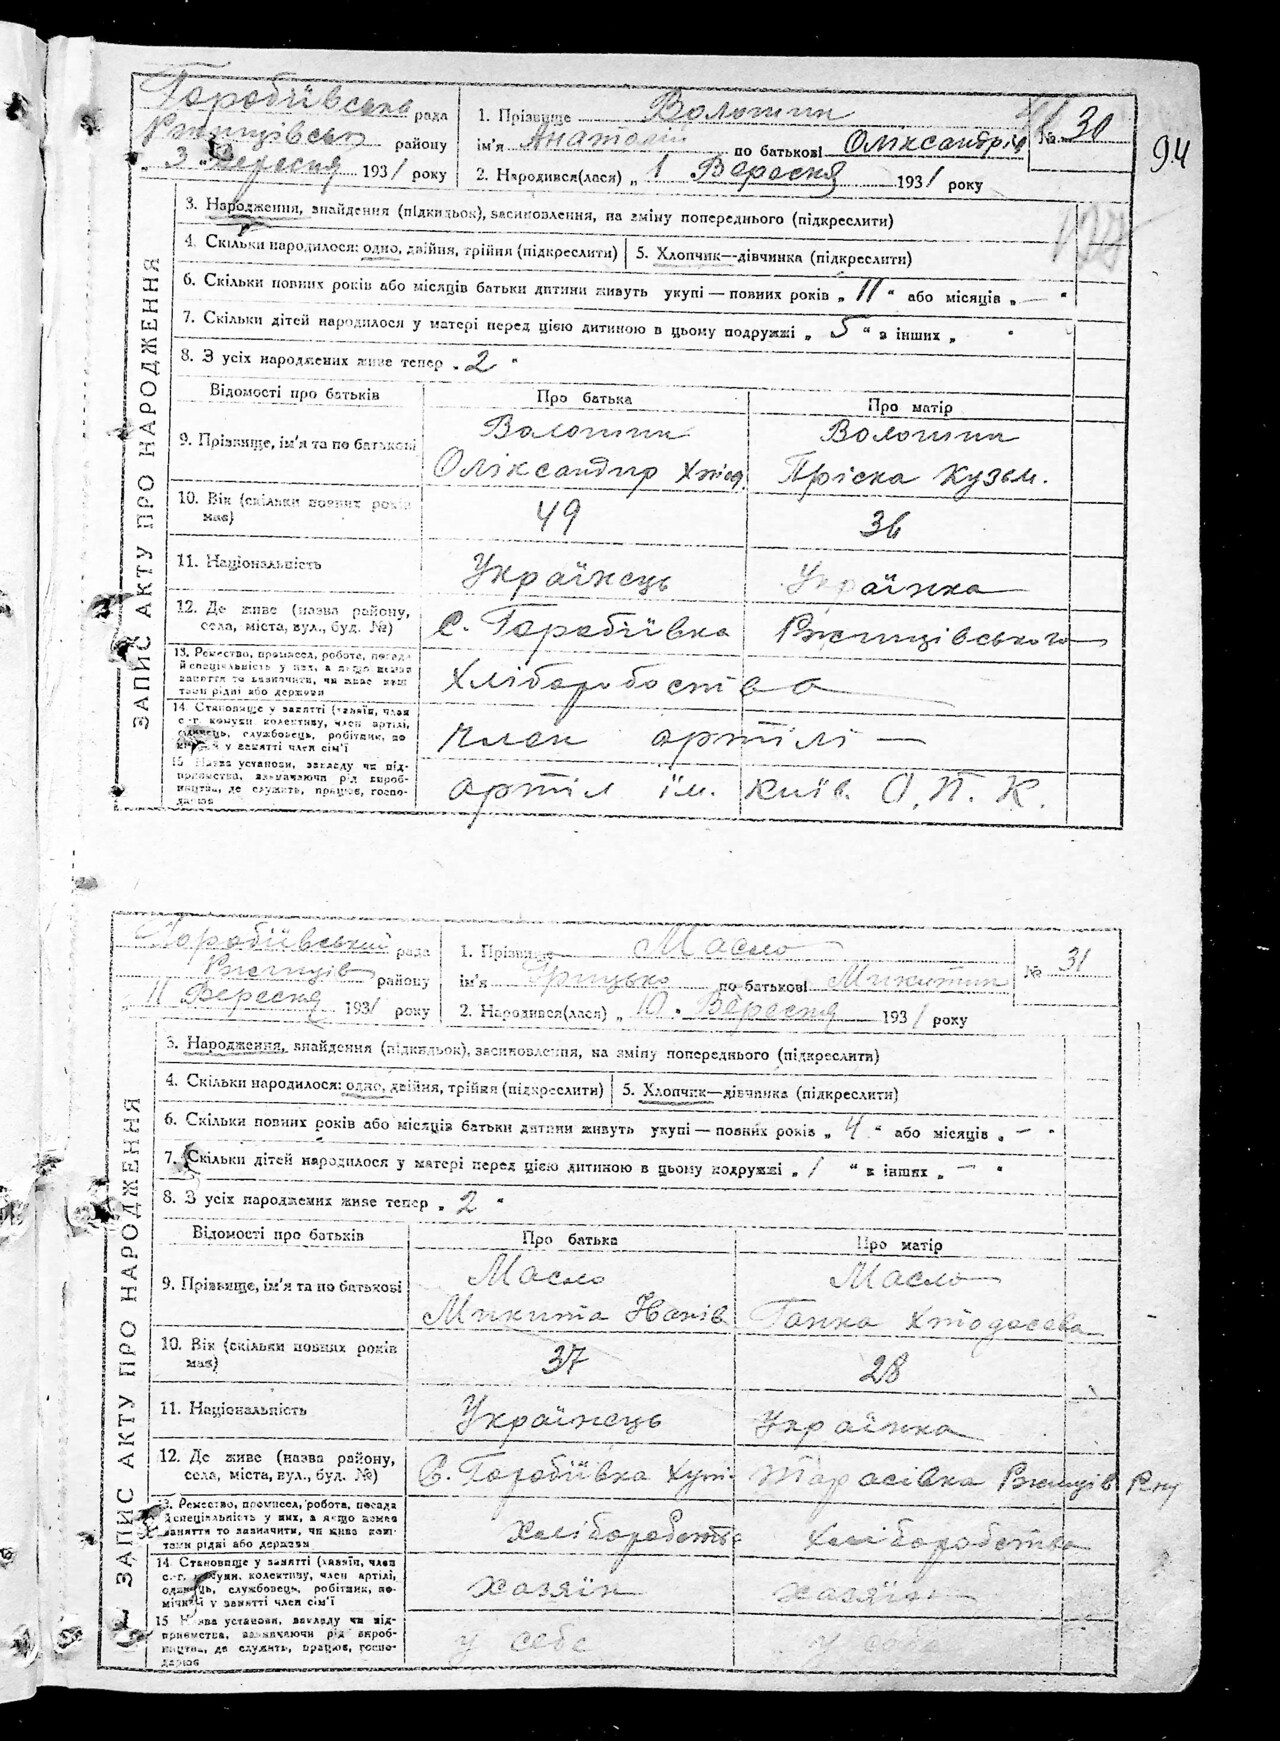 Горобіївська рада
Ржищівськ району
„ 3 „ Вересня 1931 року
1. Прізвище Волошин
ім'я Анатолій по батькові Оліксандрів
2. Народився(лася) „ 1 Вересня 1931 року
№ 30
94
ЗАПИС АКТУ ПРО НАРОДЖЕННЯ
3. Народження, знайдення (підкидьок), засиновлення, на зміну попереднього (підкреслити)
4. Скільки народилося: одно, двійня, трійня (підкреслити)
5. Хлопчик—дівчинка (підкреслити)
6. Скільки повних років або місяців батьки дитини живуть укупі — повних років „ 11 “ або місяців „ — “
7. Скільки дітей народилося у матері перед цією дитиною в цьому подружжі „ 5 “ в інших „ “
8. З усіх народжених живе тепер „ 2 “
Відомості про батьків Про батька Про матір
9. Прізвище, ім'я та по батькові
Волошин
Оліксандир Хтод.
Волошин
Пріска Кузьм.
10. Вік (скільки повних років має) 49 36
11. Національність Українець Українка
12. Де живе (назва району,
села, міста, вул., буд. №)
с. Горобіївка Ржищівського
13. Ремество, промисел, робота, посада
й спеціяльність у них, а якщо немає
заняття то зазначити, чи живе кош-
тами рідні або держави
Хліборобоства
14. Становище у занятті (хазяїн, член
с.-г. комуни, колективу, член артілі,
одинець, службовець, робітник, по-
мічний у занятті член сім'ї
член артілі —
15. Назва установи, закладу чи під-
приємства, зазначаючи рід вироб-
ництва, де служить, працює, госпо-
дарює
артіл ім. Київ. О. П. К.
Горобіївський рада
Ржищів району
„ 11 Вересня 1931 року
1. Прізвище Масло
ім'я Грицько по батькові Микитин
2. Народився(лася) „ 10. Вересня 1931 року
№ 31
ЗАПИС АКТУ ПРО НАРОДЖЕННЯ
3. Народження, знайдення (підкидьок), засиновлення, на зміну попереднього (підкреслити)
4. Скільки народилося: одно, двійня, трійня (підкреслити)
5. Хлопчик—дівчинка (підкреслити)
6. Скільки повних років або місяців батьки дитини живуть укупі — повних років „ 4 “ або місяців „ — “
7. Скільки дітей народилося у матері перед цією дитиною в цьому подружжі „ 1 “ в інших „ — “
8. З усіх народжених живе тепер „ 2 “
Відомості про батьків Про батька Про матір
9. Прізвище, ім'я та по батькові
Масло
Микита Іванів
Масло
Ганка Хтодосева
10. Вік (скільки повних років має) 37 28
11. Національність Українець Українка
12. Де живе (назва району,
села, міста, вул., буд. №)
С. Горобіївка Хут. Тарасівка Ржищів. Р-ну
13. Ремество, промисел, робота, посада
й спеціяльність у них, а якщо немає
заняття то зазначити, чи живе кош-
тами рідні або держави
Хліборобств Хліборобства
14. Становище у занятті (хазяїн, член
с.-г. комуни, колективу, член артілі,
одинець, службовець, робітник, по-
мічний у занятті член сім'ї
хазяїн хазяїн
15. Назва установи, закладу чи під-
приємства, зазначаючи рід вироб-
ництва, де служить, працює, госпо-
дарює
у себе у себе